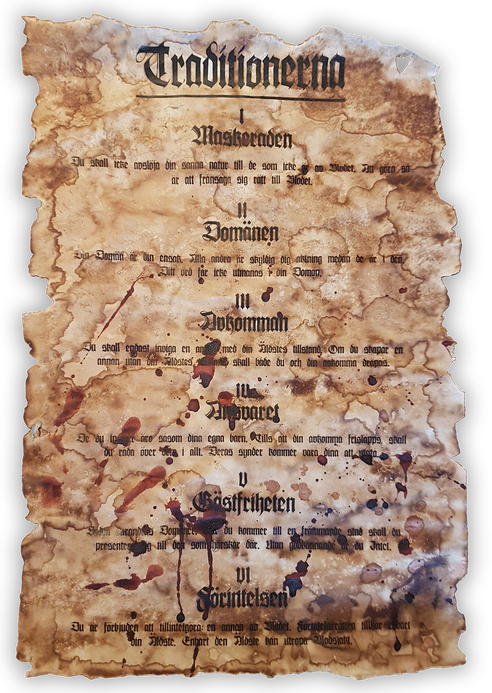 Traditionerna
I
Maskeraden
Du skall icke avslöja din sanna natur till de som icke är av Blodet. Att göra så
är att frånsäga sig rätt till Blodet.
II
Domänen
Din Domän är din ensak. Alla andra är skyldig dig aktning medan de är i den.
Ditt ord får icke utmanas i din Domän.
III
Avkomman
Du skall endast inviga en annan med din Äldstes tillstånd. Om du skapar en
annan utan din Äldstes skall både du och din avkomma dräpas.
IV
Ansvaret
De du äro såsom dina egna barn. Tills att din avkomma frisläpps, skall
du råda över i allt. Deras synder kommer vara dina att
V
Gästfriheten
du kommer till en främmande stad skall du
presentera dig till den som härskar där. Utan godkännande är du Intet.
VI
Förintelsen
Du är förbjuden att tillintetgöra en annan av Blodet. tillhör enbart
din Äldste. Enbart den Äldste kan utropa Blodsjakt.